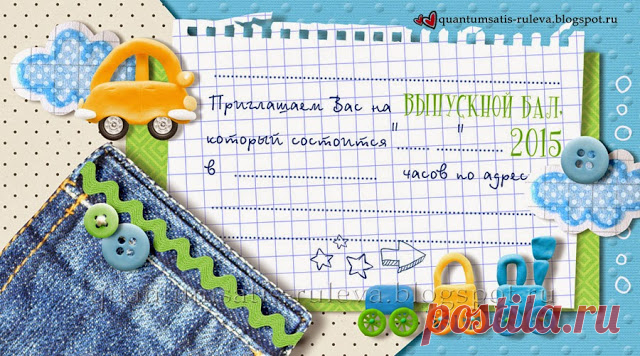 quantumsatis-ruleva.blogspot.ru
Приглашаем Вас на ВЫПУСКНОЙ БАЛ,
который состоится "...... ............" 2015
в ........................ часов по адрес
quantumsatis-ruleva.blogspot.ru
postila.ru